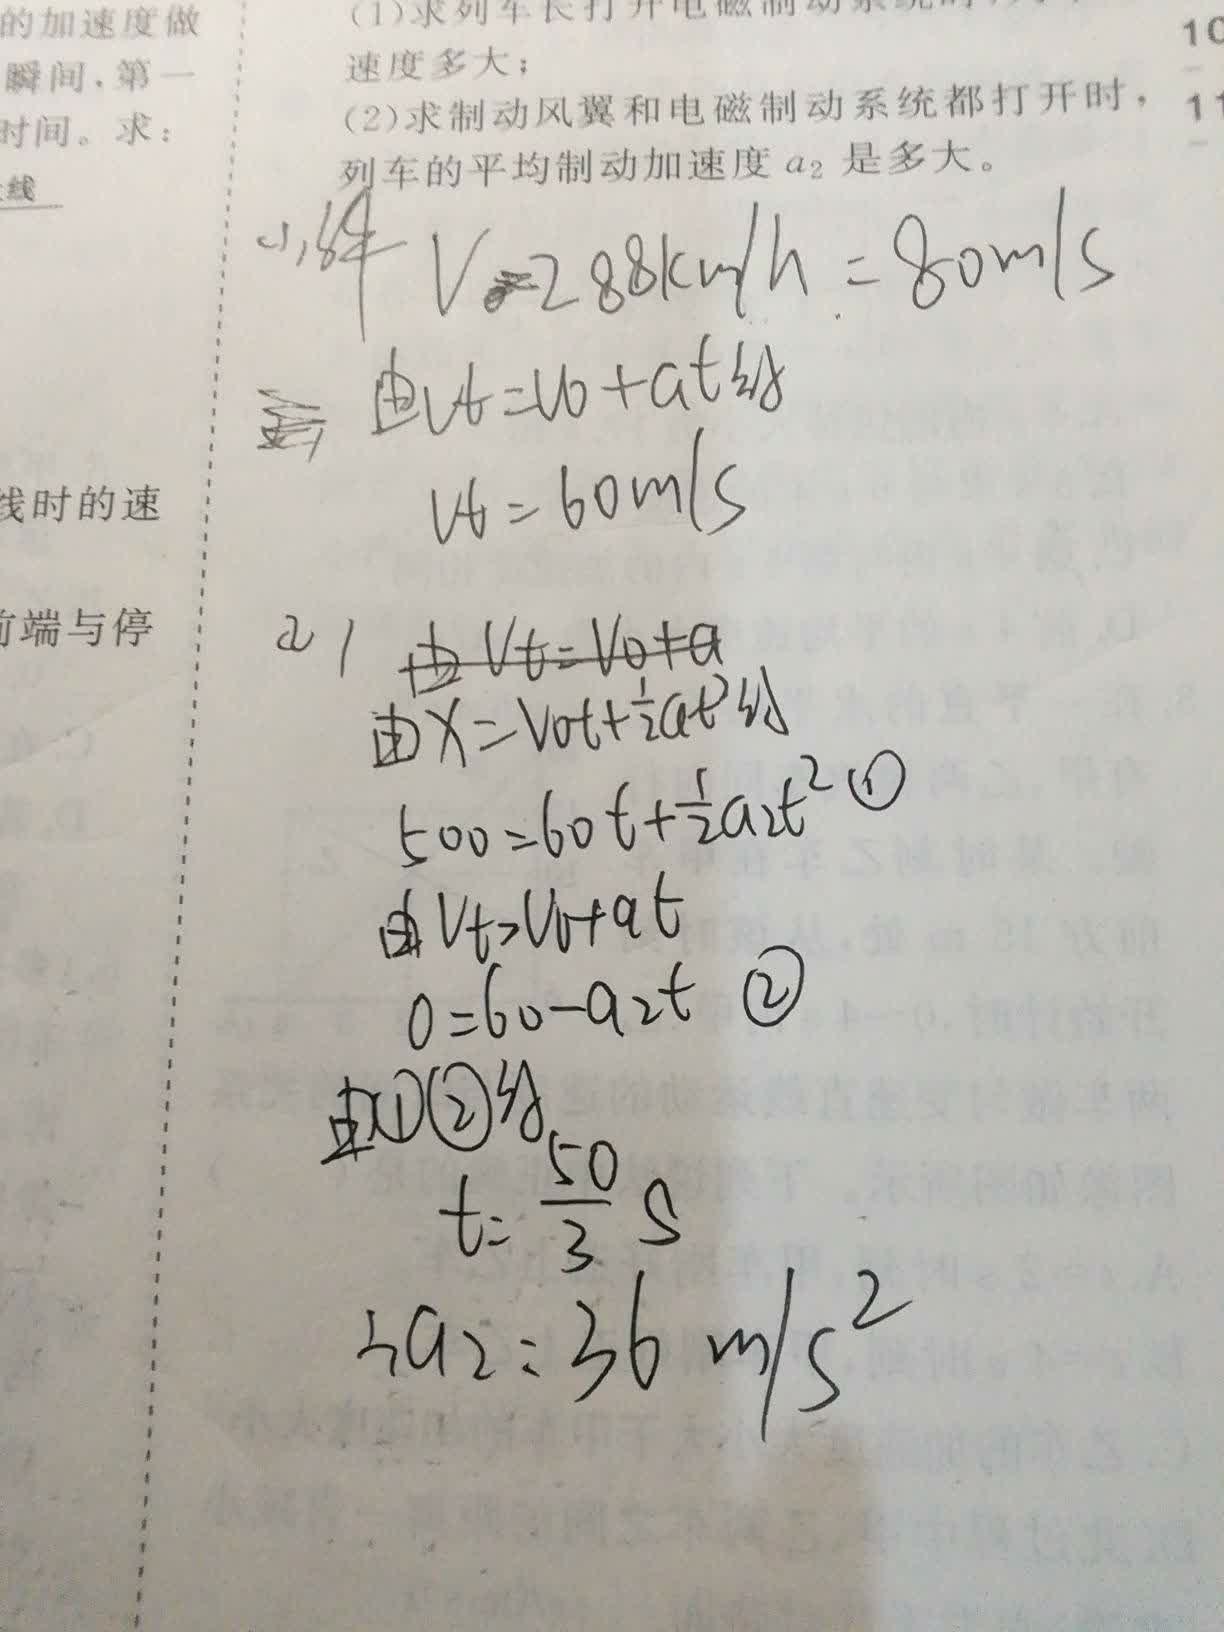 的加速度做
瞬间,第一
时间。求:
线
线时的速
前端与停
(1)求列车长打开电磁制动系统时,列车
速度多大;
(2)求制动风翼和电磁制动系统都打开时,
列车的平均制动加速度 a₂ 是多大。
10
11
(1)解 V=288km/h=80m/s
由Vt=V0+at得
Vt=60m/s
(2) 由Vt=V0+a
由X=V0t+½at²得
500=60t+½a₂t² ①
由Vt=V0+at
0=60-a₂t ②
由①②得
t=50/3 s
a₂=36 m/s²